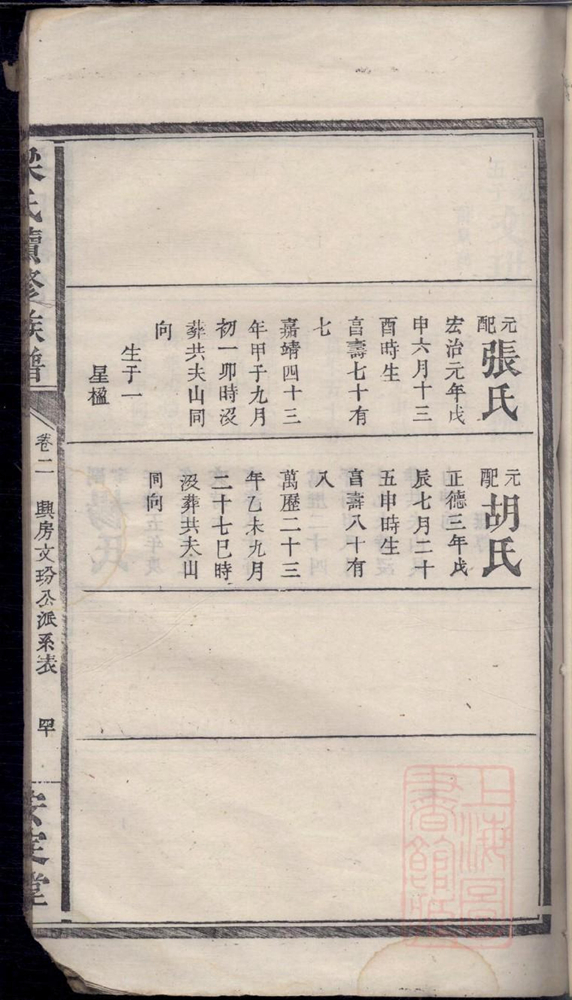 元配張氏
宏治元年戊
申六月十三
酉時生
亯壽七十有
七
嘉靖四十三
年甲子九月
初一卯時沒
葬共夫山同
向
生子一
星楹
元配胡氏
正德三年戊
辰七月二十
五申時生
亯壽八十有
八
萬歷二十三
年乙未九月
二十七巳時
沒葬共夫山
同向
梁氏續修族譜
卷二
興房文玢公派系表
罕
安定堂
上海圖書館藏